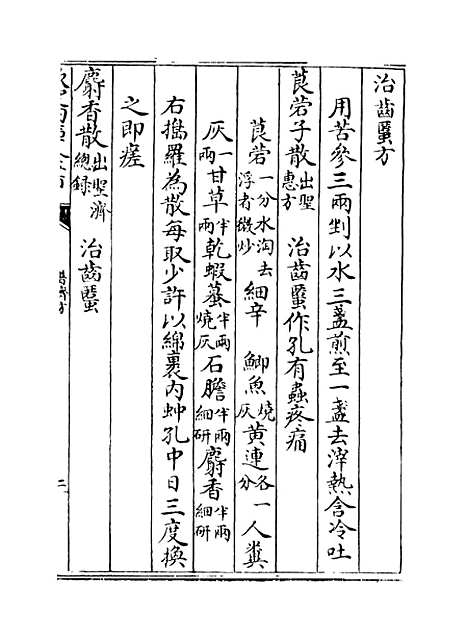 治齒䘌方
用苦參三兩剉以水三盞煎至一盞去滓熱含冷吐
莨菪子散出聖惠方 治齒䘌作孔有蟲疼痛
莨菪一分水淘去浮者微炒 細辛 鯽魚燒灰 黃連各一分 人糞
灰一兩甘草半兩乾蝦蟇半兩燒灰石膽半兩細研麝香半兩細研
右搗羅為散每取少許以綿裹内蚛孔中日三度換
之即瘥
麝香散出聖濟總録 治齒䘌